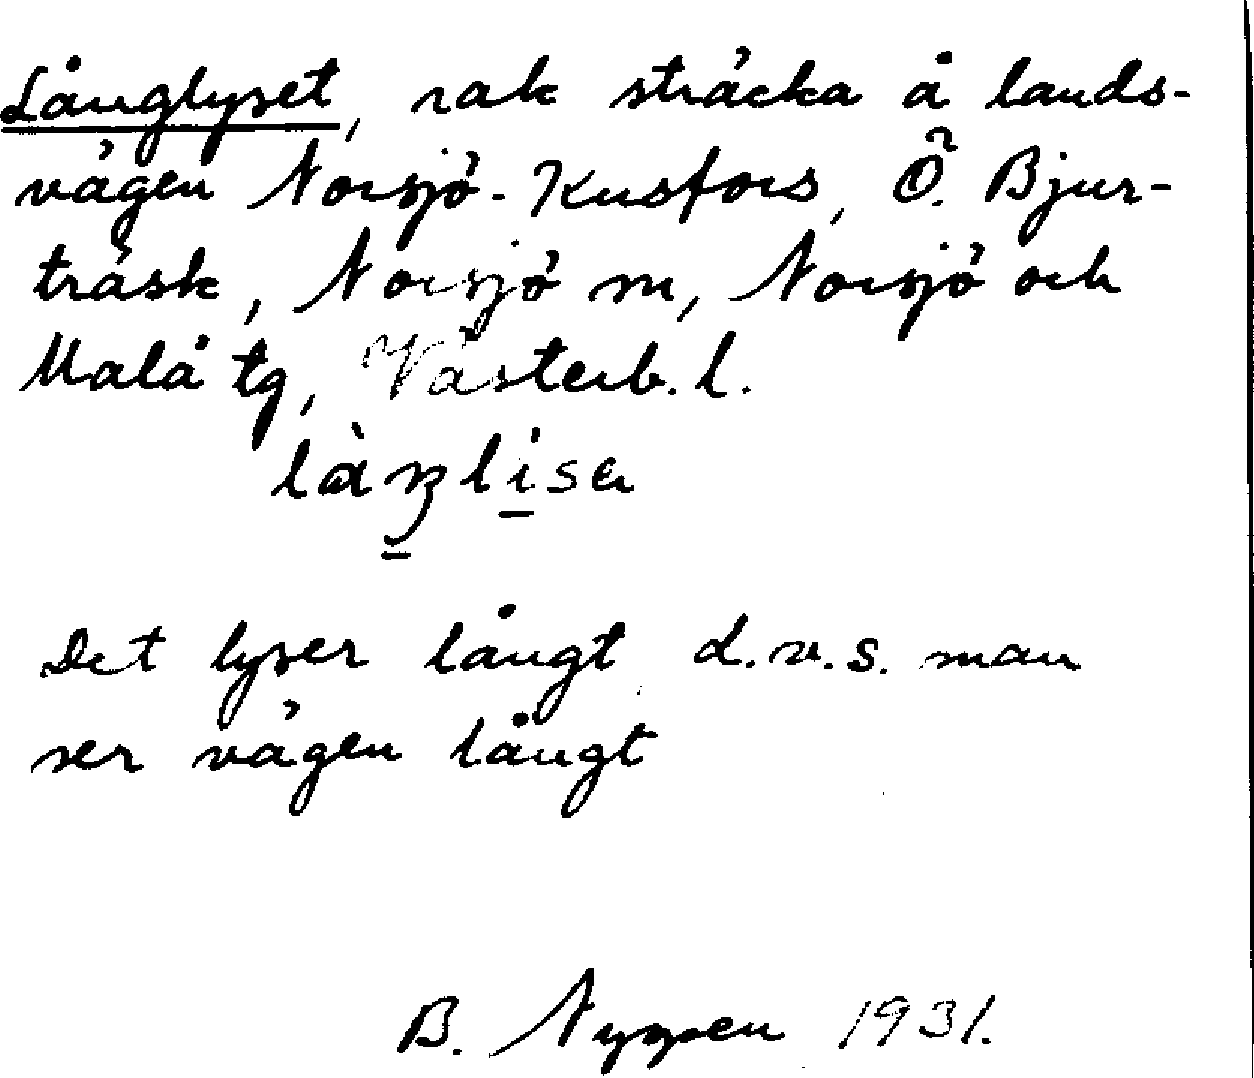 Långlyset, rak sträcka å lands-
vägen Norsjö - Kusfors, Ö. Bjur-
träsk, Norsjö sn, Norsjö och
Malå tg, Västerb. l.
Det lyser långt d.v.s. man
ser vägen långt
B. 1931.